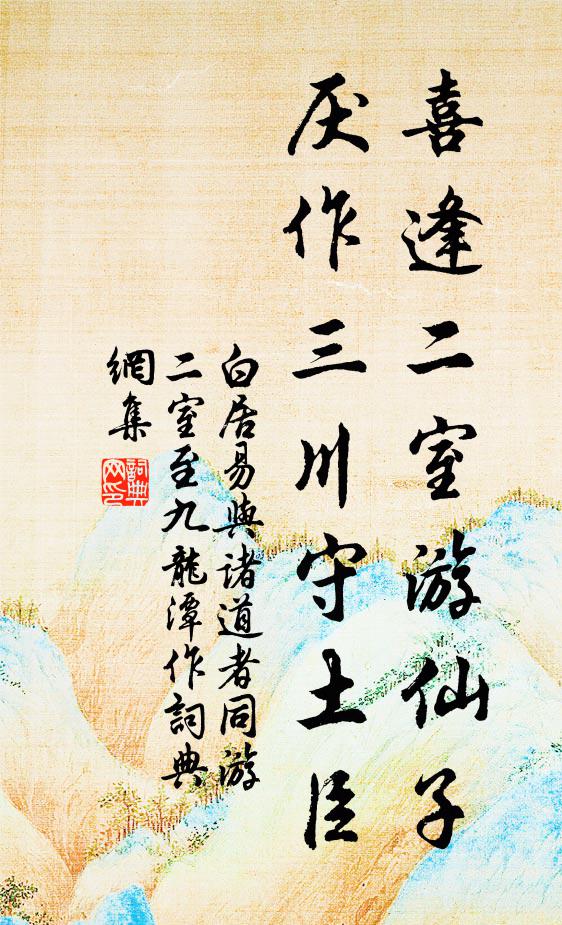 喜逢二室游仙子
厌作三川守土臣
白居易與諸道者同游
二室至九龍潭作詞典
網集
詞典
网印